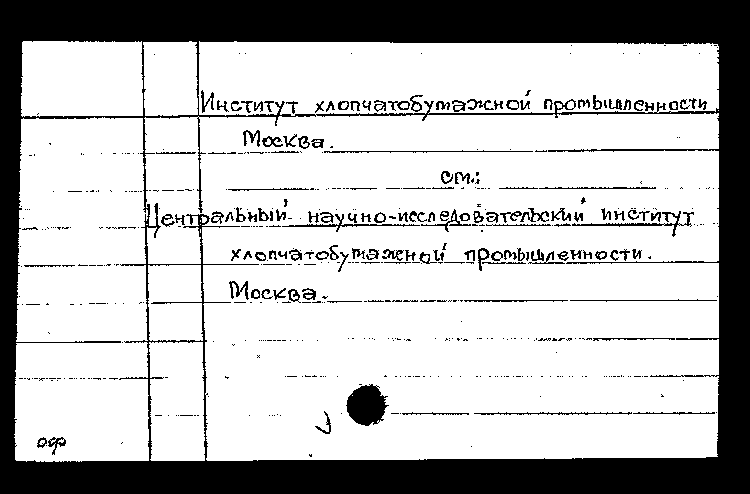 Институт хлопчатобумажной промышленности.
Москва.
см.:
Центральный научно-исследовательский институт
хлопчатобумажной промышленности.
Москва.
оф